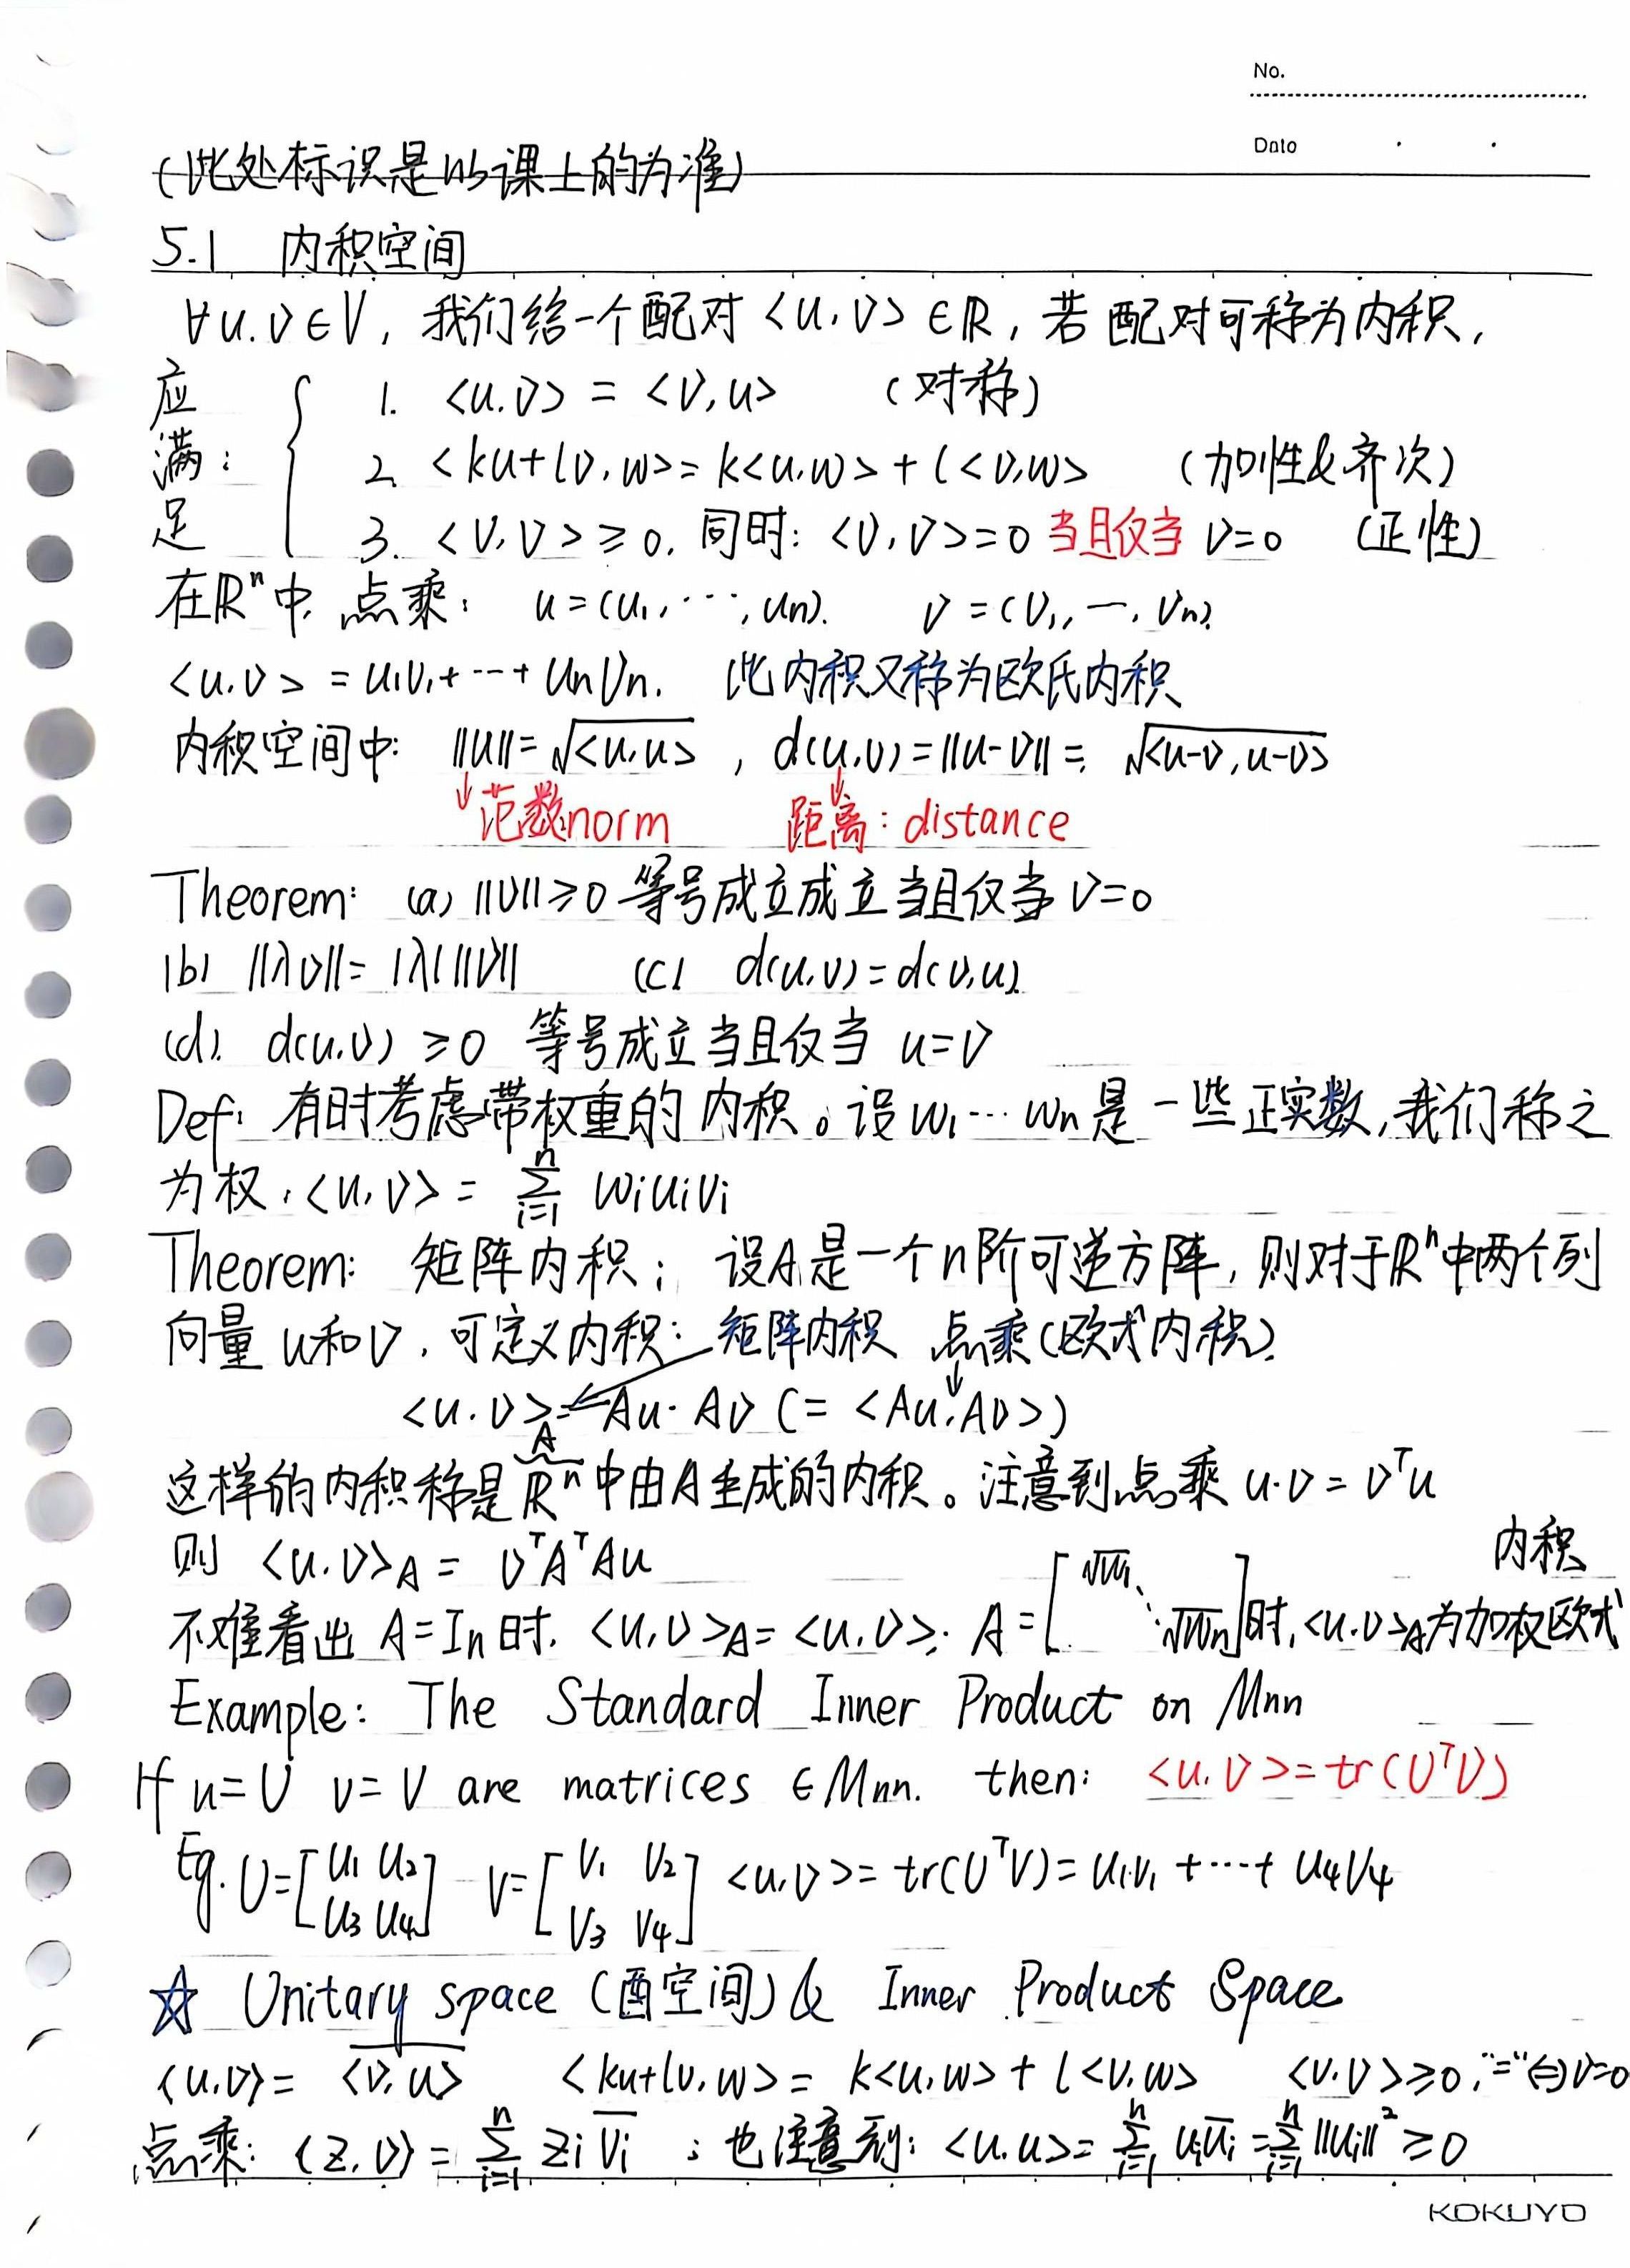 No.
Date
(此处标识是以课上的为准)
5.1 内积空间
∀u.v∈V, 我们给一个配对 <u,v> ∈ℝ, 若配对可称为内积,
应满足: { 1. <u.v> = <v,u> (对称)
2. <ku+lv, w> = k<u,w> + l<v,w> (加性&齐次)
3. <v,v> ≥ 0. 同时: <v,v>=0 当且仅当 v=0 (正性)
在ℝⁿ中, 点乘: u=(u₁,⋯,uₙ). v=(v₁,—,vₙ).
<u.v> = u₁v₁+⋯+uₙvₙ. 此内积又称为欧氏内积
内积空间中: ||u||=√<u,u> , d(u,v)=||u-v||=√<u-v,u-v>
↓范数norm ↓距离: distance
Theorem: (a) ||v||≥0 等号成立成立当且仅当 v=0
(b) ||λv||=|λ| ||v|| (c) d(u,v)=d(v,u)
(d). d(u,v) ≥0 等号成立当且仅当 u=v
Def: 有时考虑带权重的内积。设 w₁⋯wₙ是一些正实数,我们称之
为权, <u,v> = ∑ᵢ₌₁ⁿ wᵢuᵢvᵢ
Theorem: 矩阵内积; 设A是一个n阶可逆方阵, 则对于ℝⁿ中两个列
向量 u和v, 可定义内积: 矩阵内积 点乘(欧式内积)
<u.v>_A = Au·Av (= <Au,Av>)
这样的内积称是ℝⁿ中由A生成的内积。注意到点乘 u·v = vᵀu
则 <u.v>_A = vᵀAᵀAu 内积
不难看出 A=Iₙ时, <u,v>_A=<u,v>; A=[√w₁ ⋱ √wₙ]时, <u.v>_A为加权欧式
Example: The Standard Inner Product on Mnn
If u=U v=V are matrices ∈Mnn. then: <u.v>=tr(UᵀV)
Eg. U=[u₁ u₂ u₃ u₄] V=[v₁ v₂ v₃ v₄] <u,v>=tr(UᵀV)=u₁v₁+⋯+u₄v₄
☆ Unitary space (酉空间) & Inner Product Space
<u,v>= \overline{<v,u>} <ku+lv,w>= k<u,w> + l<v,w> <v,v>≥0, "="⇔v=0
点乘: <z,v> = ∑ᵢ₌₁ⁿ zᵢ\overline{vᵢ} ; 也注意到: <u.u>=∑ᵢ₌₁ⁿ uᵢ\overline{uᵢ}=∑ᵢ₌₁ⁿ||uᵢ||²≥0
KOKUYO